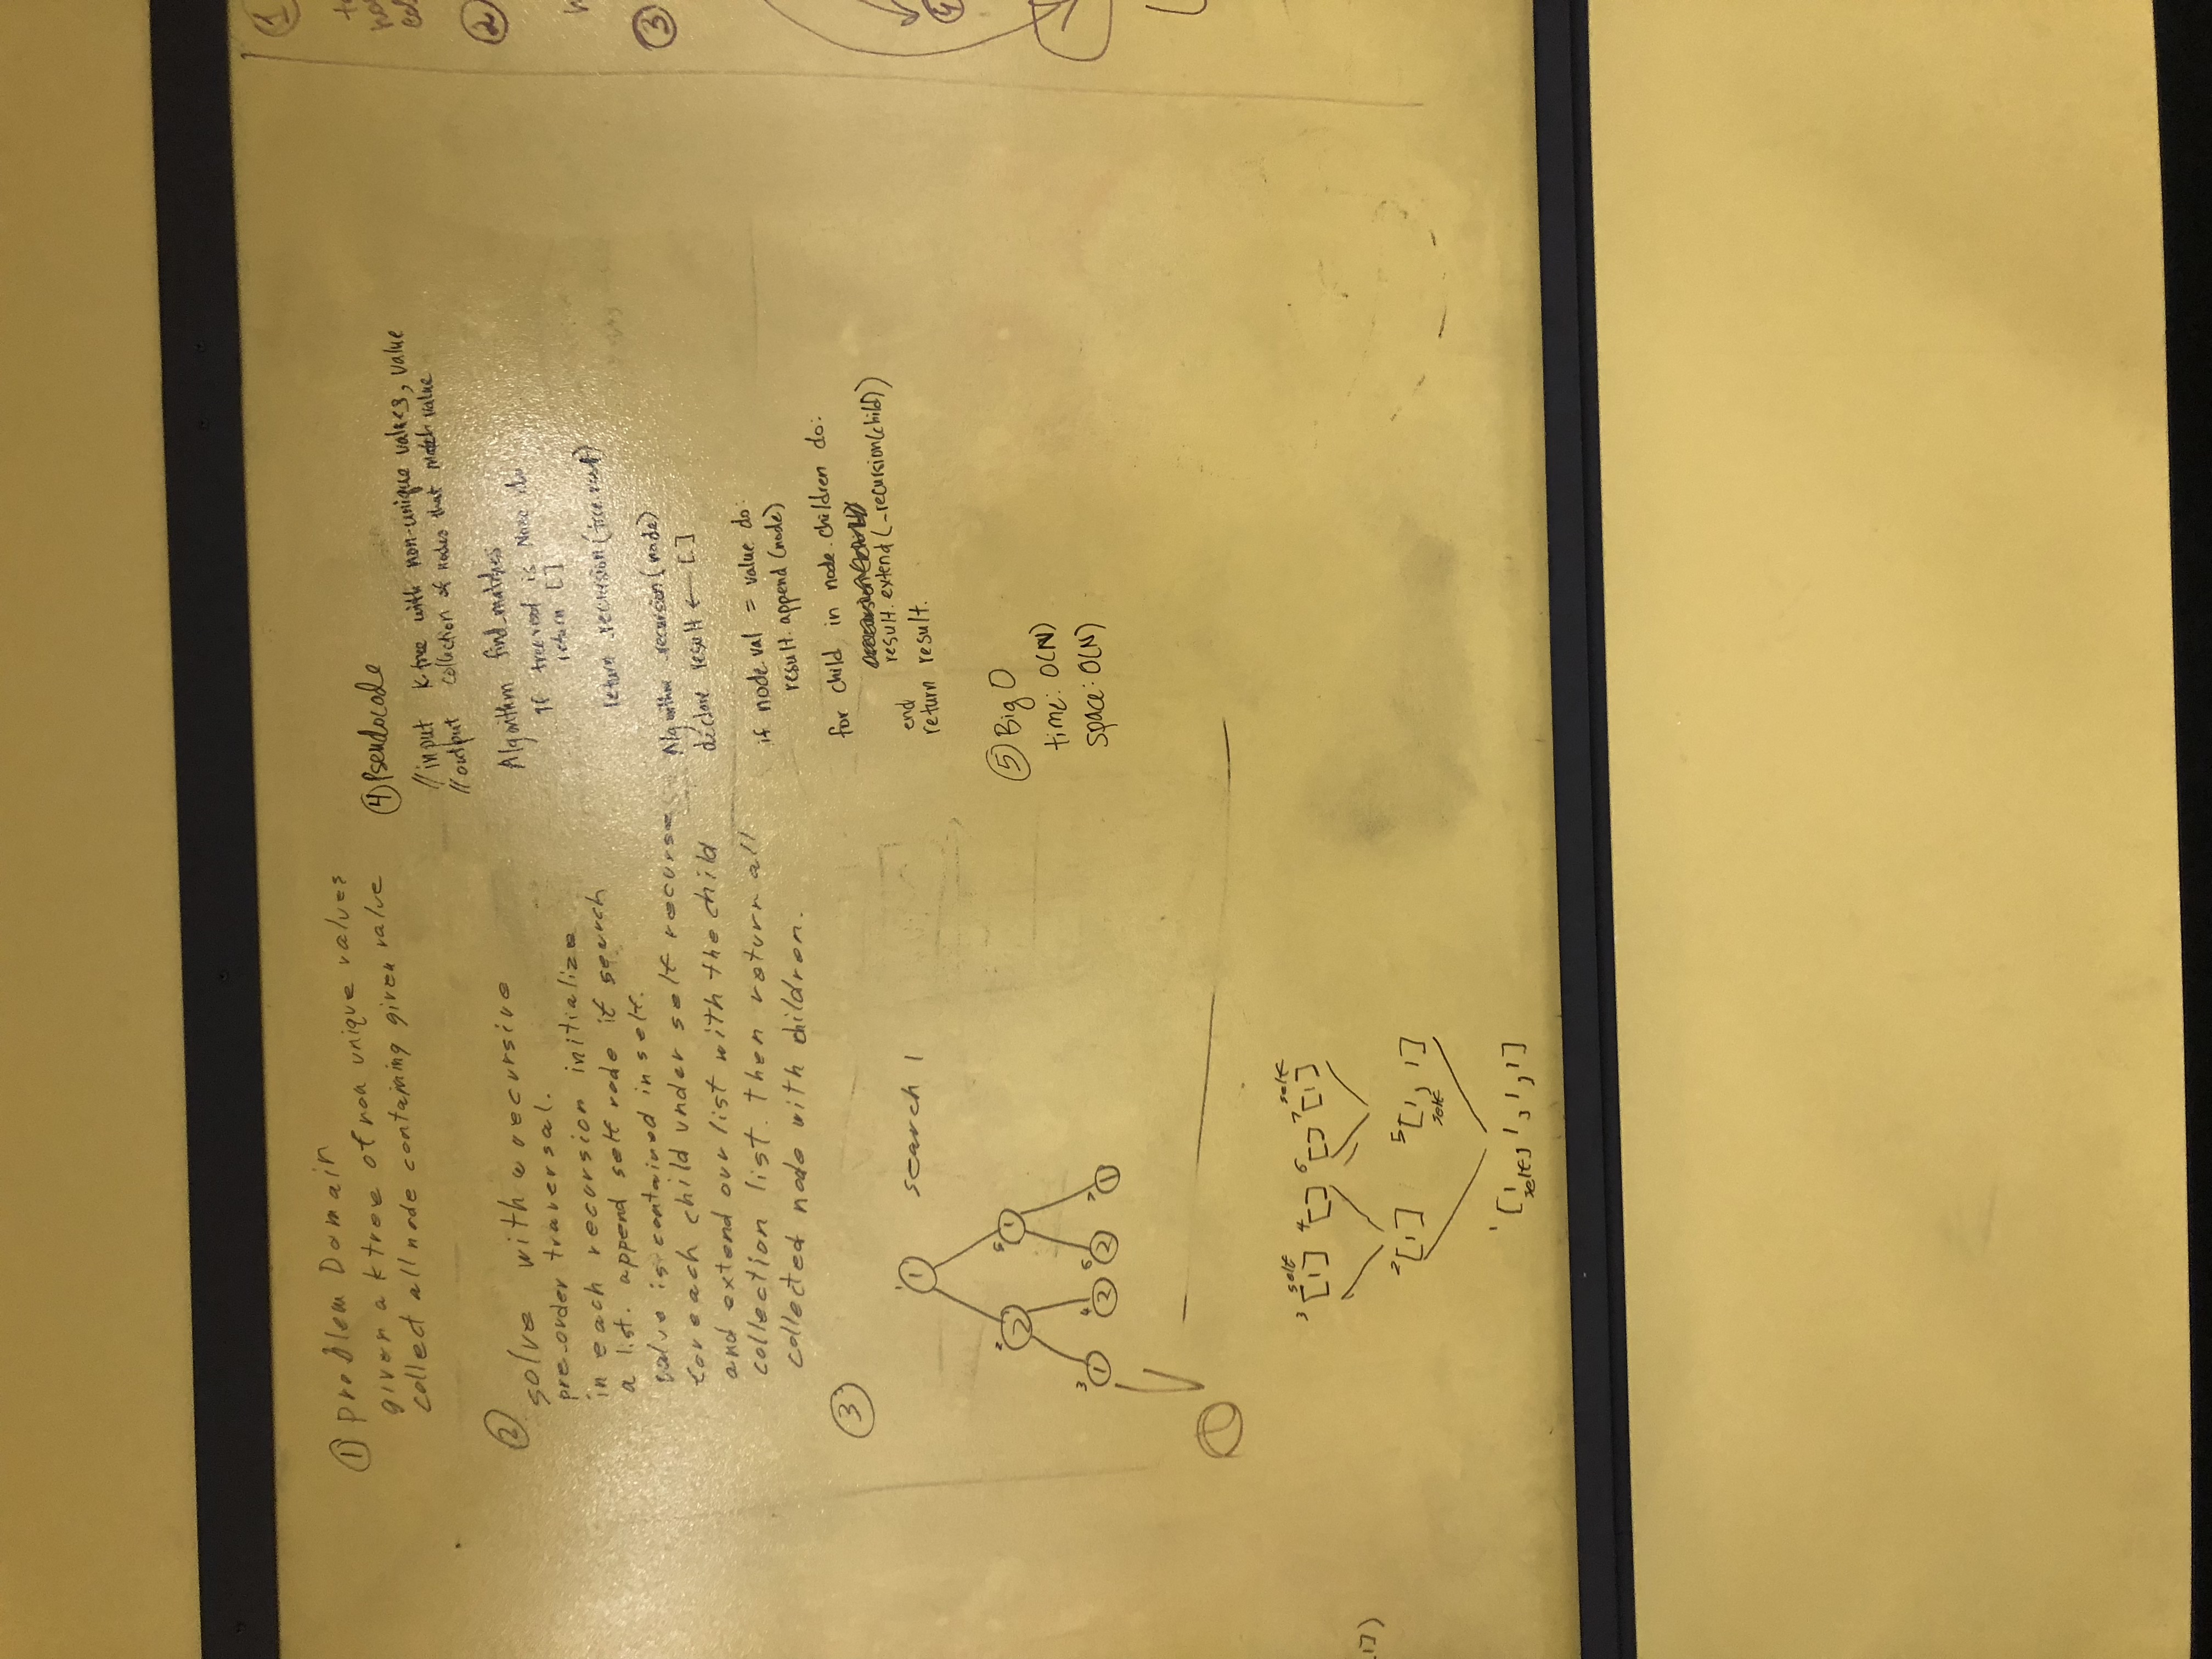 ① Problem Domain
given a k tree of non unique values
collect all node containing given value
②
solve with a recursive
pre-order traversal.
in each recursion initialize
a list. append self node if search
value is contained in self.
for each child under self recurse
and extend our list with the child
collection list. then return all
collected node with children.
③
search 1
1 ①
2 ② 5 ①
3 ① 4 ② 6 ② 7 ①
①
self self
3 [1] 4 [] 6 [] 7 [1]
2 [1] 5 [1, 1]
self
1 [1, 1, 1, 1]
self
④ Pseudocode
// input K-tree with non-unique values, value
// output collection of nodes that match value
Algorithm find_matches
if tree.root is None do
return []
return _recursion(tree.root)
Algorithm _recursion(node)
declare result ← []
if node.val = value do:
result.append(node)
for child in node.children do:
result.extend(_recursion(child))
end
return result.
⑤ Big O
time: O(N)
space: O(N)
1])
①
②
③